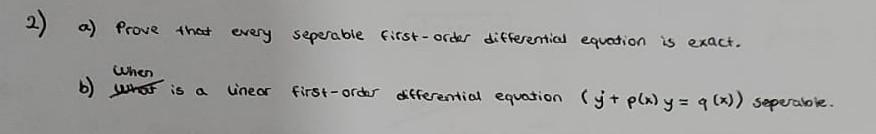 2) a) Prove that every seperable first-order differential equation is exact.
When
b) what is a linear first-order differential equation (y' + p(x) y = q(x)) seperable.